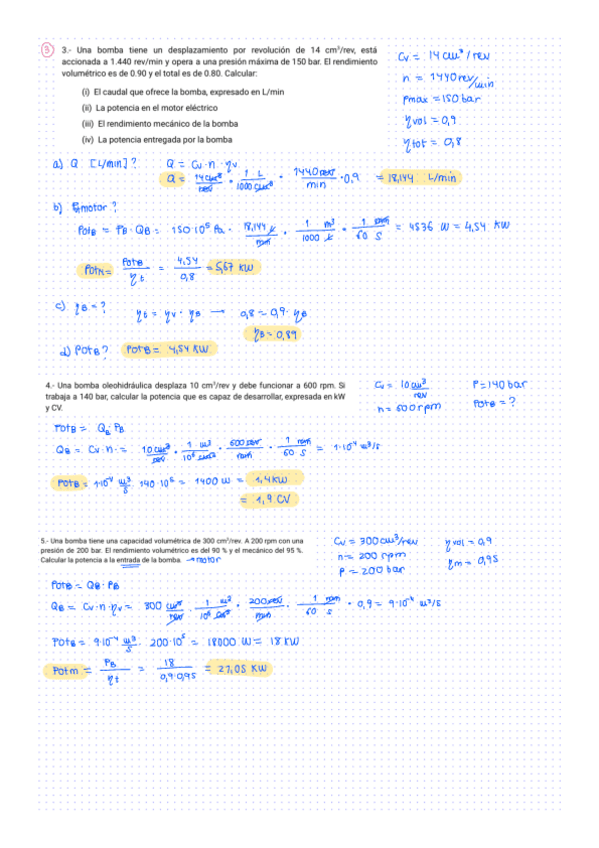 3
3.- Una bomba tiene un desplazamiento por revolución de 14 cm³/rev, está
accionada a 1.440 rev/min y opera a una presión máxima de 150 bar. El rendimiento
volumétrico es de 0.90 y el total es de 0.80. Calcular:
(i) El caudal que ofrece la bomba, expresado en L/min
(ii) La potencia en el motor eléctrico
(iii) El rendimiento mecánico de la bomba
(iv) La potencia entregada por la bomba
Cv = 14 cm³/rev
n = 1440 rev/min
Pmax = 150 bar
ηvol = 0,9
ηtot = 0,8
a) Q [L/min]? Q = Cv · n · ηv
Q = 14 cm³/rev · 1 L/1000 cm³ · 1440 rev/min · 0,9 = 18,144 L/min
b) motor?
PotB = PB · QB = 150·10⁵ Pa · 18,144 L/min · 1 m³/1000 L · 1 min/60 s = 4536 W = 4,54 KW
PotM = PotB/ηt = 4,54/0,8 = 5,67 KW
c) ηB = ? ηt = ηv · ηB → 0,8 = 0,9 · ηB
ηB = 0,89
d) PotB? PotB = 4,54 KW
4.- Una bomba oleohidráulica desplaza 10 cm³/rev y debe funcionar a 600 rpm. Si
trabaja a 140 bar, calcular la potencia que es capaz de desarrollar, expresada en kW
y CV.
Cv = 10 cm³/rev P = 140 bar
n = 600 rpm PotB = ?
PotB = QB · PB
QB = Cv · n · = 10 cm³/rev · 1 m³/10⁶ cm³ · 600 rev/min · 1 min/60 s = 1·10⁻⁴ m³/s
PotB = 1·10⁻⁴ m³/s · 140·10⁵ = 1400 W = 1,4 KW
= 1,9 CV
5.- Una bomba tiene una capacidad volumétrica de 300 cm³/rev. A 200 rpm con una
presión de 200 bar. El rendimiento volumétrico es del 90 % y el mecánico del 95 %.
Calcular la potencia a la entrada de la bomba. → motor
Cv = 300 cm³/rev ηvol = 0,9
n = 200 rpm ηm = 0,95
P = 200 bar
PotB = QB · PB
QB = Cv · n · ηv = 300 cm³/rev · 1 m³/10⁶ cm³ · 200 rev/min · 1 min/60 s · 0,9 = 9·10⁻⁴ m³/s
PotB = 9·10⁻⁴ m³/s · 200·10⁵ = 18000 W = 18 KW
Potm = PB/ηt = 18/0,9·0,95 = 21,05 KW